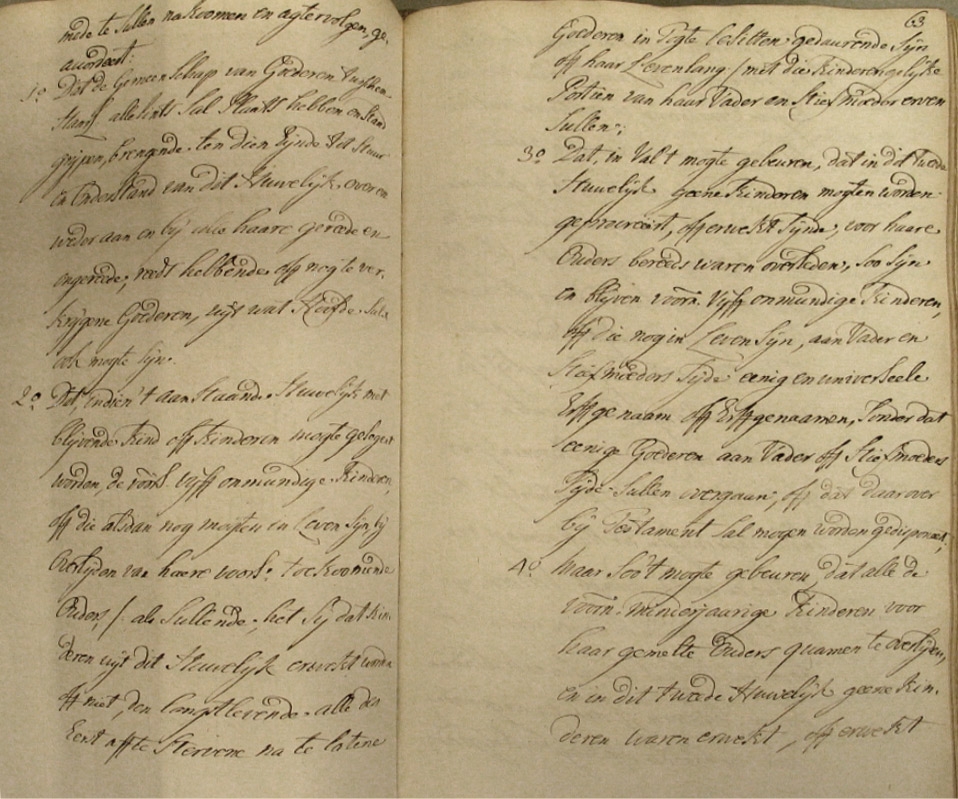 mede te sullen nakoomen en agtervolgen, ge-
accordeert:
1o Dat de Gemeenschap van Goederen tusschen
allesints sal plaats hebben en stand
grijpen, brengende ten dien Eijnde tot stuur
en onderstand van dit Huwelijk over en
weder aan en bij alle haare gereede en
ongereede, reets hebbende off nog te ver-
krijgene Goederen, uijt wat Hoofde sulx
ook mogte sijn.
2o Dat, indien 't aanstaande Huwelijk met
blijvende kind off kinderen mogte gesegent
worden, de voors. vijff onmundige kinderen,
off die alsdan nog mogten in Leven sijn bij
overlijden van haere voors. toekoomende
Ouders, (als sullende, het sij dat kin-
deren uijt dit Huwelijk erwekt worden
off niet, den langstlevende alle des
Eerst affte Stervene na te latene
63
Goederen in Togte besitten, gedaurende sijn
off haar Levenlang) met die kinderen gelijke
Portien van haar Vader en Stiefmoeder erven
sullen;
3o Dat, in val 't mogte gebeuren, dat in dit twede
Huwelijk geene kinderen mogten worden
geprocreëert, off erwekt sijnde, voor haare
Ouders bereeds waren overleden, soo sijn
en blijven voorn. vijff onmundige kinderen,
off die nog in Leven sijn, aan Vader en
Stiefmoeders sijde eenig en universeele
Erffgenaam off Erffgenaamen, sonder dat
eenige Goederen aan Vader off Stiefmoeders
sijde sullen overgaan, off dat daar over
bij Testament sal mogen worden gedisponeert,
4o Maar soo 't mogte gebeuren, dat alle de
voorn. minderjaarige kinderen voor
haar gemelte Ouders quamen te overlijden,
en in dit tweede Huwelijk geene kin-
deren waren erwekt, off erwekt